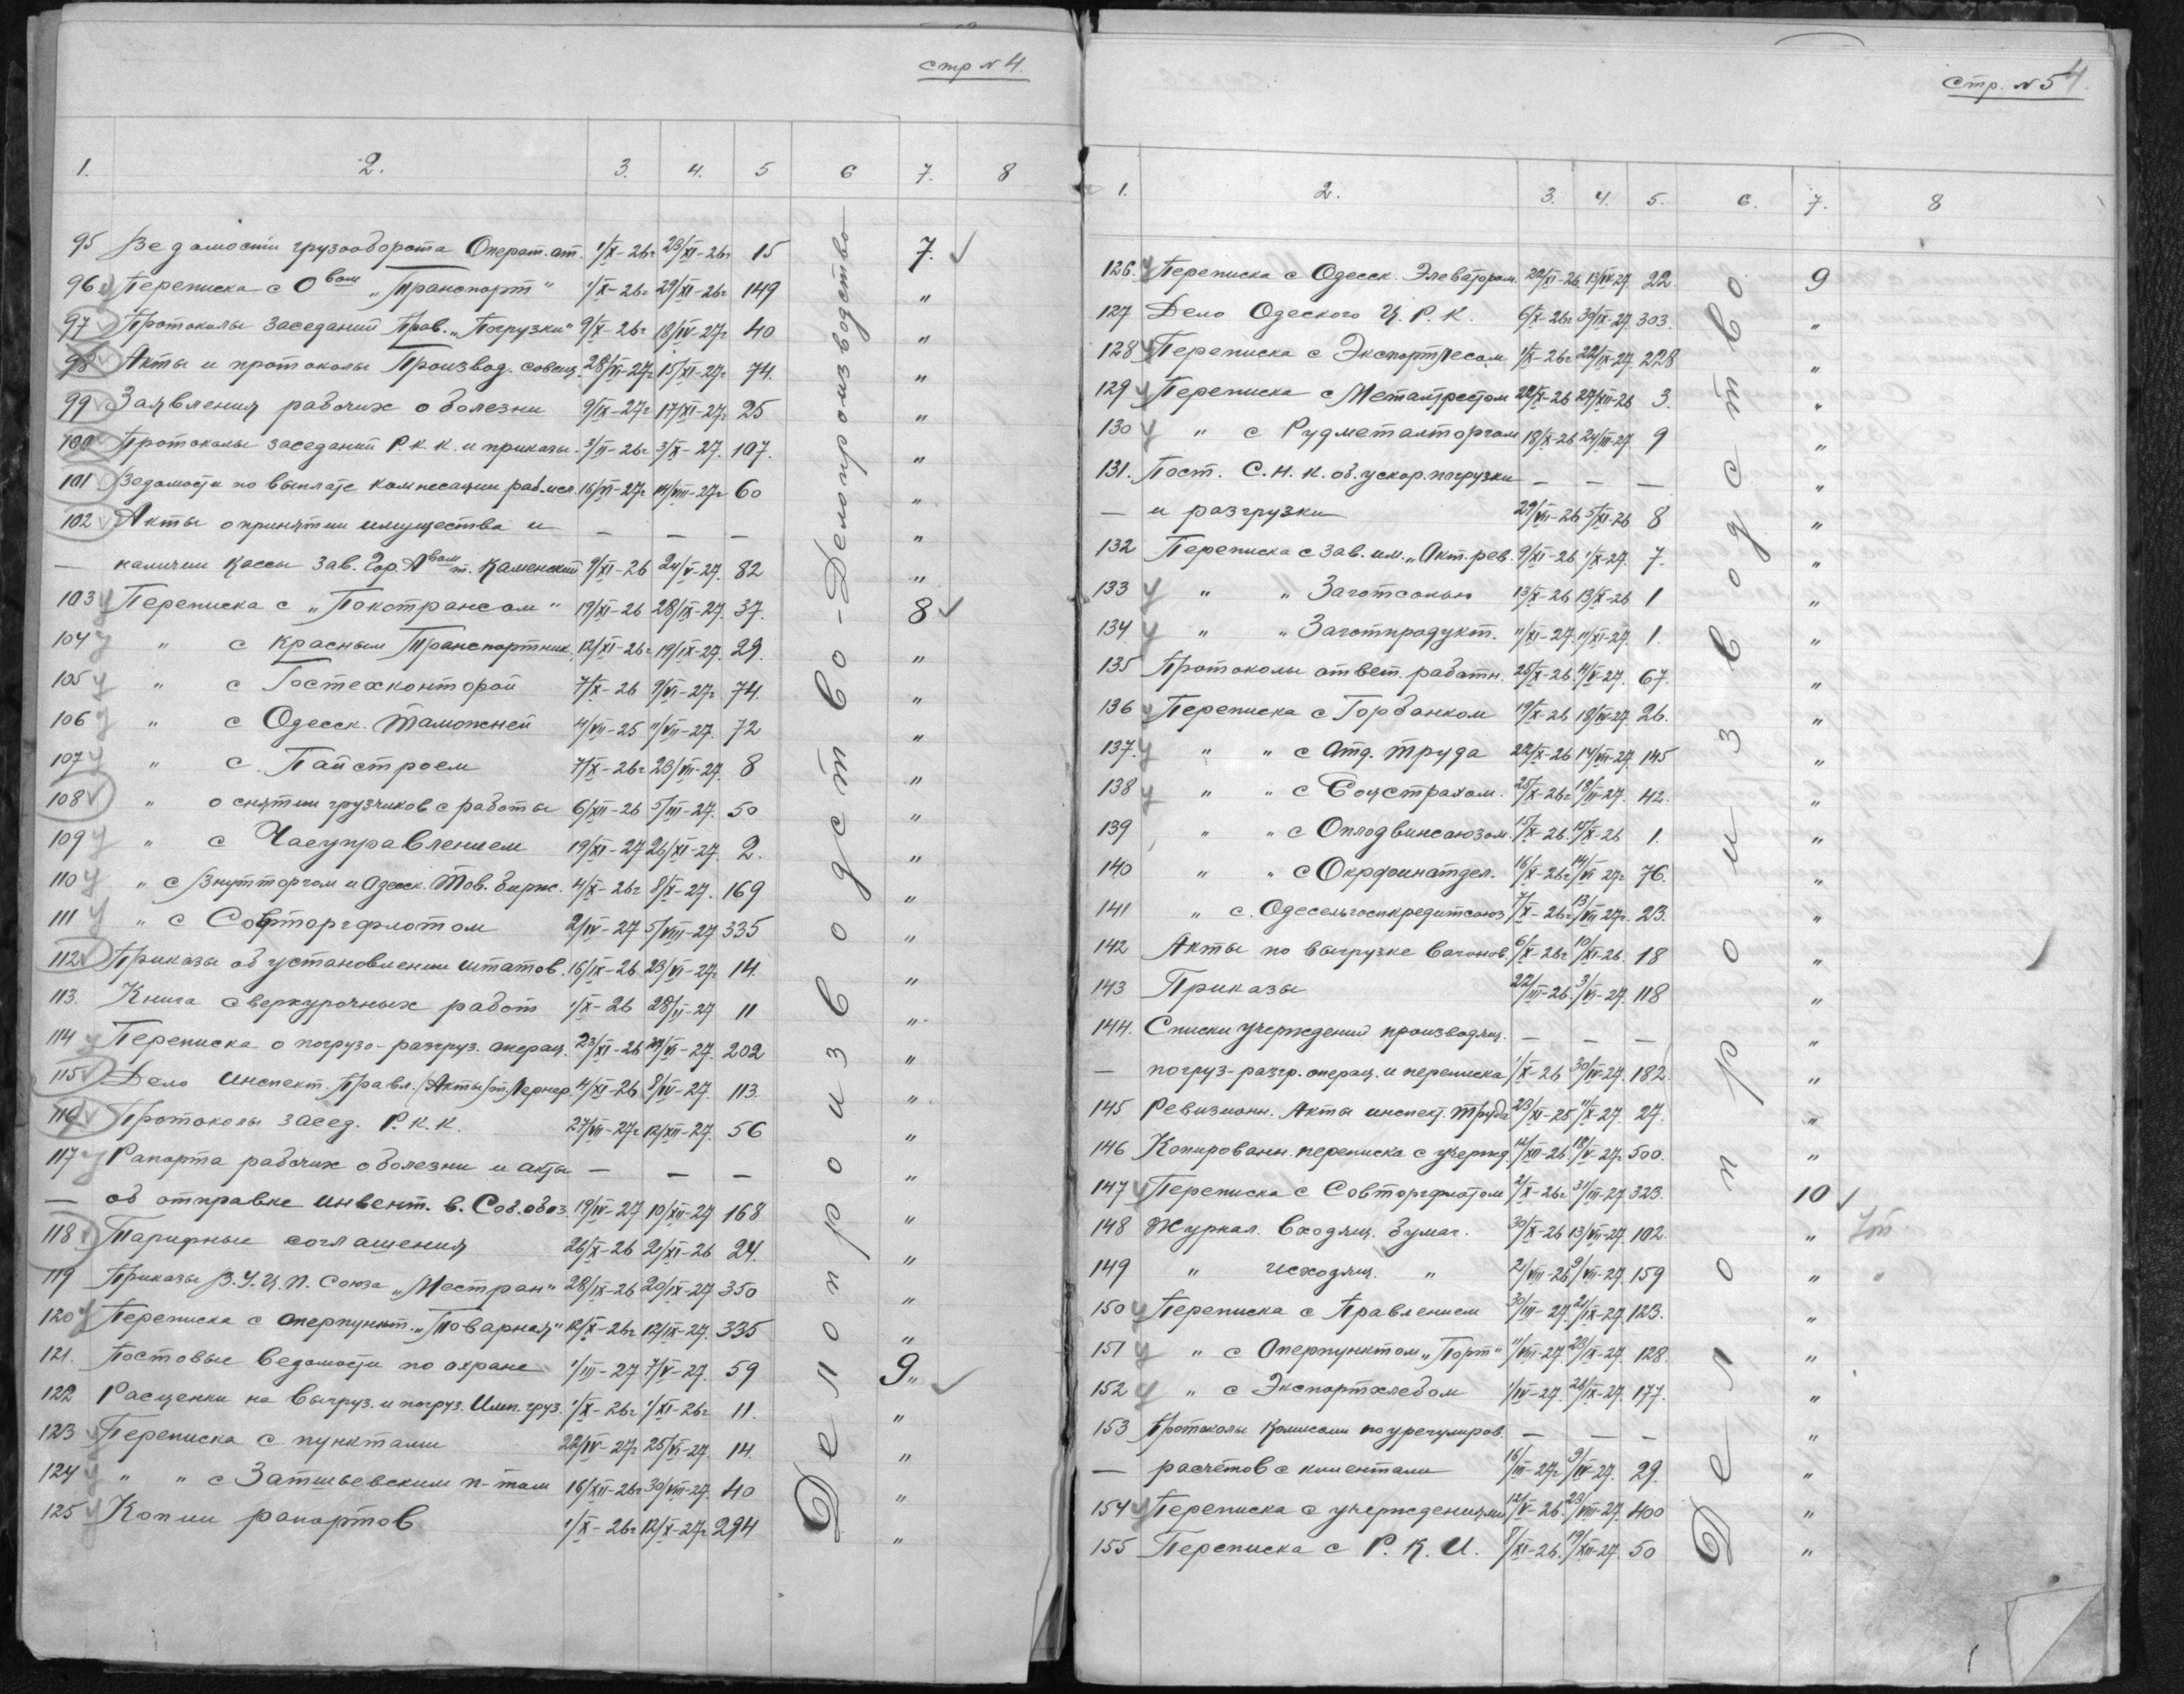 стр N 4.
1. 2. 3. 4. 5 6 7. 8
95 Ведомости грузооборота Операт. от. 1/X-26г 23/XI-26г 15 7.
96 Переписка с Овом „Транспорт" 1/X-26г 29/XI-26г 149 "
97 Протоколы заседаний Прав. „Погрузки" 9/X-26г 18/IV-27г 40 "
98 Акты и протоколы Производ. совещ. 28/VI-27г 15/XI-27г 74. "
99 Заявления рабочих о болезни 9/IX-27г 17/XI-27г 25 "
100 Протоколы заседаний Р.К.К. и приказы. 3/II-26г 3/X-27. 107. "
101 Ведомости по выплате компесации раб. 16/VI-27г 14/VIII-27г 60 "
102 Акты о принятии имущества и — — — "
— наличии кассы Зав. Гор. т. Каменский 9/XI-26 24/V-27. 82 "
103 Переписка с „Покотрансом" 19/XI-26 28/IX-27. 37. 8
104 " с Красным Транспортник. 12/XI-26г 19/IX-27. 29. "
105 " с Гостехконторой 7/X-26 9/VI-27г 74. "
106 " с Одесск. Таможней 4/VII-25 11/VII-27. 72 "
107 " с. Пайстроем 7/X-26г 23/VII-27. 8 "
108 " о снятии грузчиков с работы 6/XII-26 5/III-27. 50 "
109 " с Часуправлением 19/XI-27 26/XI-27. 2. "
110 " с Внутторгом и Одесск. Тов. Бирж. 4/X-26г 8/X-27. 169 "
111 " с Совторгфлотом 2/IV-27 5/VIII-27 335 "
112 Приказы об установлении штатов. 16/IX-26 23/VI-27г 14. "
113. Книга сверхурочных работ 1/X-26 28/II-27 11 "
114 Переписка о погрузо-разгруз. операц. 23/XI-26 29/VI-27. 202 "
115 Дело Инспект. Правл. /Акты/ т. Лернер. 4/XI-26 8/IV-27. 113. "
116 Протоколы засед. Р.К.К. 27/VII-27г 12/XII-27. 56 "
117 Рапорта рабочих о болезни и акты — — — "
— об отправке инвент. в. Соб. обоз. 19/IV-27 10/XII-27 168 "
118 Тарифные соглашения 26/X-26 21/XI-26 24. "
119 Приказы В.У.Ц.П. Союза „Местран" 28/IX-26 20/IX-27 350 "
120 Переписка с оперпункт. „Товарная" 12/X-26г 12/IX-27. 335 "
121. Постовые ведомости по охране 1/III-27 7/V-27. 59 9
122 Расценки на выгруз. и погруз. Имп. груз. 1/X-26г 1/XI-26г 11. "
123 Переписка с пунктами 22/IV-27г 25/VI-27. 14. "
124 " " с Затишьевским п-том 16/XII-26г 30/VIII-27. 40 "
125 Копии рапортов 1/X-26г 12/X-27г 294 "
Делопроизводство - Делопроизводство
Стр. N 5 4.
1. 2. 3. 4. 5. 6. 7. 8
126. Переписка с Одесск. Элеватором. 22/XI-26 13/IV-27. 22. 9
127 Дело Одеского Ц.Р.К. 6/X-26г 30/IX-27. 303. "
128 Переписка с Экспортлесом 1/X-26г 22/IX-27. 228 "
129 Переписка с Металтрестом 22/X-26 27/XII-26 3. "
130 " с Рудметалторгом 18/X-26 24/III-27. 9 "
131. Пост. С.Н.К. об. ускор. погрузки — — — "
— и разгрузки 29/VII-26 5/XI-26 8 "
132 Переписка с зав. им. „Окт. рев. 9/XI-26 1/X-27. 7. "
133 " " Заготсолью 13/X-26 13/X-26 1 "
134 " " Заготпродукт. 11/XI-27. 11/XI-27. 1. "
135 Протоколы ответ. работн. 25/X-26. 11/V-27. 67. "
136 Переписка с Горбанком 19/X-26 18/IV-27. 26. "
137. " " с Отд. Труда 22/X-26 14/VII-27. 145 "
138 " " с Соцстрахом. 25/X-26г 18/II-27. 42. "
139 " " с Оплодвинсоюзом. 15/X-26. 15/X-26 1. "
140 " " с Окрфинатдел. 16/X-26г 14/VI 27г 76. "
141 " с. Одесельгоспкредитсоюз 7/X-26г 13/VII 27г. 23. "
142 Акты по выгрузке вагонов. 6/X-26г 10/XI-26. 18 "
143 Приказы 22/III-26. 3/VI-27. 118 "
144. Списки учереждений производящ. — — — "
— погруз-разгр. операц. и переписка 1/X-26 30/IV-27. 182. "
145 Ревизионн. Акты инспект. Труда 23/XI-25 11/X-27. 27. "
146 Копированн. переписка с учережд. 14/XII-26. 18/V-27г 500. "
147 Переписка с Совторгфлотом 2/X-26г 31/III-27. 323. 10
148 Журнал. входящ. бумаг. 30/X-26 13/VII-27. 102. "
149 " исходящ. " 2/VIII-26 9/VII-27. 159 "
150 Переписка с Правлением 30/III-27. 21/IX-27. 123. "
151 " с Оперпунктом „Порт" 11/VIII-27. 23/IX-27. 128. "
152 " с Экспортхлебом 1/IV-27. 26/IX-27. 177. "
153 Протоколы Комиссии по урегулиров. — — — "
— расчётов с клиентами 16/III-27г 9/IV-27. 29. "
154 Переписка с учереждениями 12/V-26. 23/VIII-27. 400 "
155 Переписка с Р.К.И. 8/XI-26. 19/XII-27 50 "
Делопроизводство